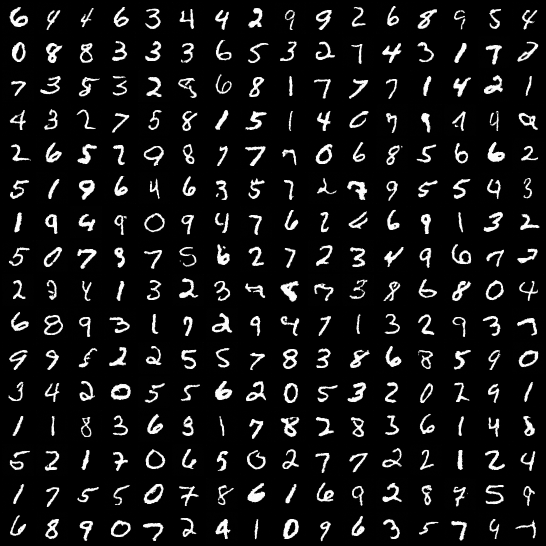 6 4 4 6 3 4 4 2 9 9 2 6 8 9 5 4
0 8 8 3 3 3 6 5 3 2 7 4 3 1 7 2
7 3 5 3 2 8 6 8 1 7 7 7 1 4 2 1
4 3 2 7 5 8 1 5 1 4 0 9 9 1 9 a
2 6 5 2 9 8 7 7 7 0 6 8 5 6 6 2
5 1 9 6 4 6 3 5 7 2 7 9 5 5 4 3
1 9 4 9 0 9 4 7 6 2 2 6 9 1 3 2
5 0 7 9 7 5 6 2 7 2 3 4 9 6 7 2
2 2 4 1 3 2 3 7 8 7 3 8 6 8 0 4
6 8 9 3 1 7 2 9 4 7 1 3 2 9 3 7
9 9 5 2 2 5 5 7 8 3 8 6 8 5 9 0
3 4 2 0 5 5 6 2 0 5 3 2 0 2 9 1
1 1 8 3 6 3 1 7 8 2 8 3 6 1 4 8
5 2 1 7 0 6 5 0 2 7 7 2 2 1 2 4
1 7 5 5 0 7 8 6 1 6 9 2 8 7 5 9
6 8 9 0 7 2 4 1 0 9 6 3 5 7 4 7